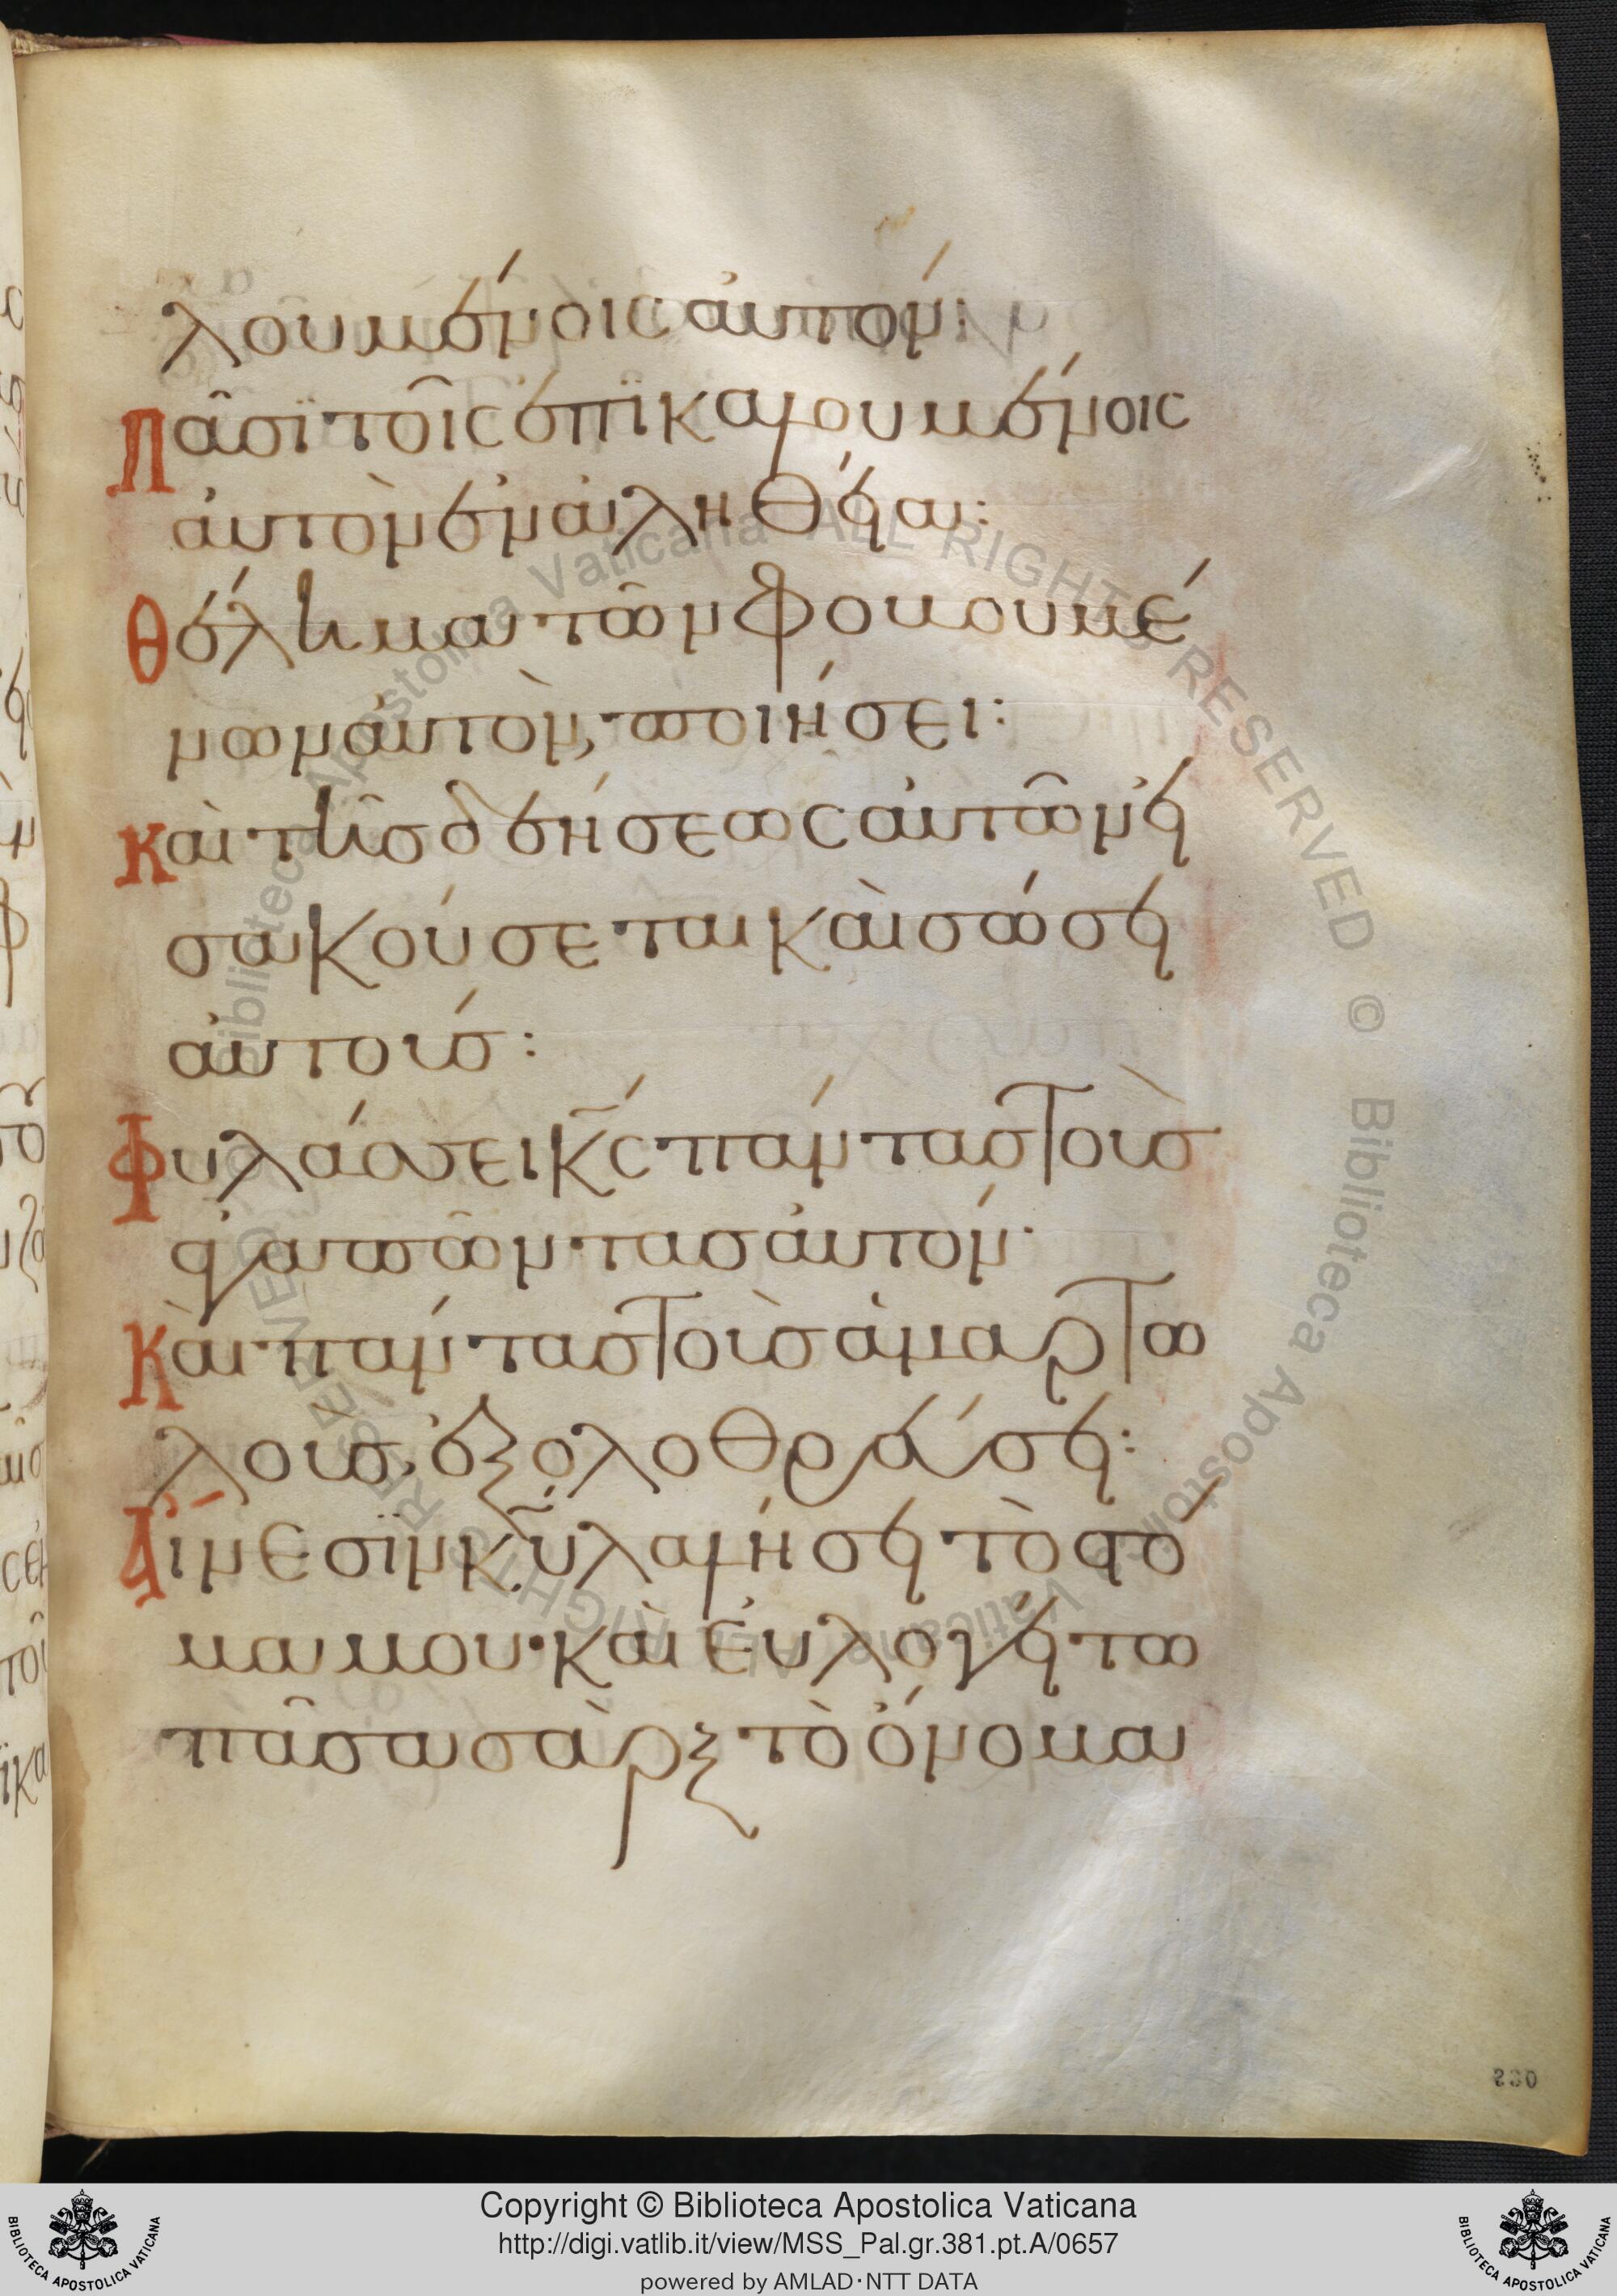 λουμένοις αὐτόν:
Πᾶσϊ τοῖς ἐπϊκαλουμένοις
αὐτὸν ἐν ἀληθείαι:
Θέλημα τῶν φοβουμέ
νων ἀυτὸν, ποιήσει:
Καὶ τῆσ δεήσεως αὐτῶν εἰ
σακούσεται καὶ σώσει
αὐτούσ:
Φυλάσσει κ̅ς πάντασ τοὺσ
ἀγαπῶντασ ἀυτόν·
Κὰι πάντασ τοὺσ ἁμαρτω
λοὺσ, ἐξολοθρεύσει:
Αἴνεσϊν κ̅υ λαλήσει τὸ στό
μα μου· Κὰι ἐυλογείτω
πᾶσα σὰρξ τὸ ὄνομα
230
Copyright © Biblioteca Apostolica Vaticana
http://digi.vatlib.it/view/MSS_Pal.gr.381.pt.A/0657
powered by AMLAD·NTT DATA
BIBLIOTECA APOSTOLICA VATICANA
BIBLIOTECA APOSTOLICA VATICANA
Biblioteca Apostolica Vaticana ALL RIGHTS RESERVED © Biblioteca Apostolica Vaticana ALL RIGHTS RESERVED ©